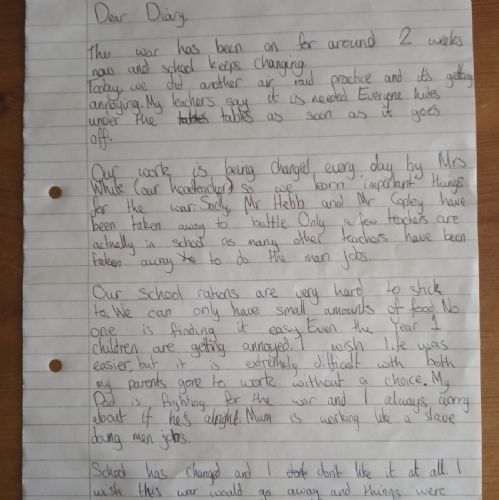 Dear Diary,
The war has been on for around 2 weeks
now and school keeps changing.
Today, we did another air raid practice and it's getting
annoying. My teachers say it is needed. Everyone hides
under the tables tables as soon as it goes
off.
Our work is being changed every day by Mrs
White (our headteacher) so we learn important things
for the war. Sadly, Mr Hebb and Mr Copley have
been taken away to battle. Only a few teachers are
actually in school as many other teachers have been
taken away to to do the man jobs.
Our school rations are very hard to stick
to. We can only have small amounts of food. No
one is finding it easy. Even the Year 1
children are getting annoyed. I wish life was
easier, but it is extremely difficult with both
my parents gone to work without a choice. My
Dad is fighting for the war and I always worry
about if he's alright. Mum is working like a slave
doing men jobs.
School has changed and I dont like it at all. I
wish this war would go away and things were